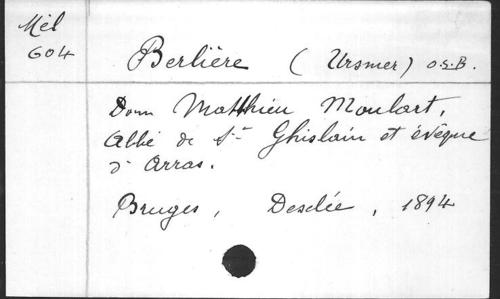 Mél
604
Berlière ( Ursmer) O.S.B.
Dom Matthieu Moulart,
abbé de St Ghislain et évêque
d'Arras.
Bruges, Desclée, 1894